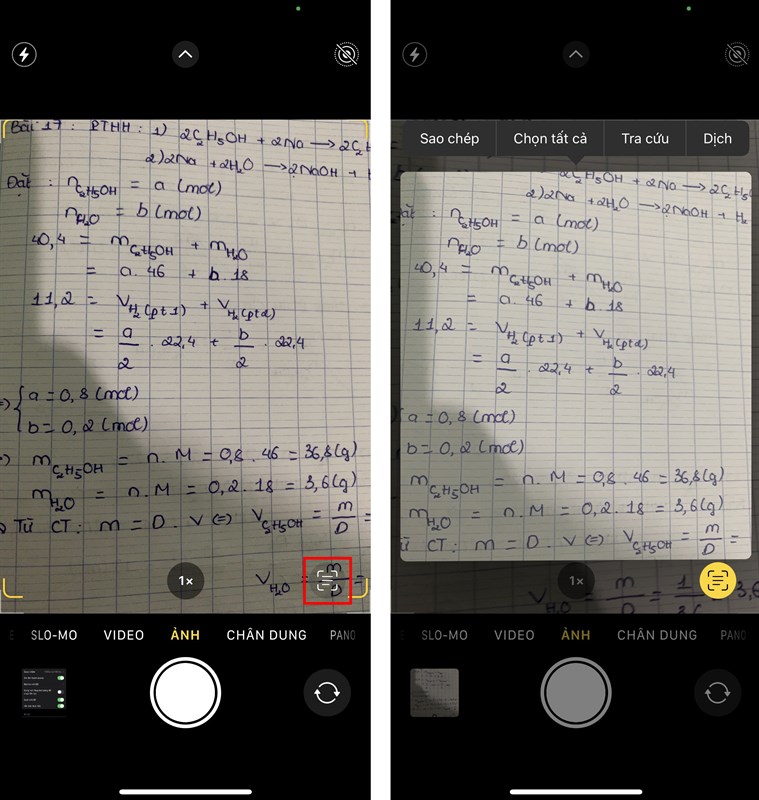 Bài 17: PTHH: 1) 2C₂H₅OH + 2Na → 2C₂H
2) 2Na + 2H₂O → 2NaOH + H
Đặt : n_C₂H₅OH = a (mol)
n_H₂O = b (mol)
40,4 = m_C₂H₅OH + m_H₂O
= a.46 + b.18
11,2 = V_H₂(pt1) + V_H₂(pt2)
= a/2 . 22,4 + b/2 . 22,4
=> { a = 0,8 (mol)
b = 0,2 (mol)
=> m_C₂H₅OH = n.M = 0,8.46 = 36,8 (g)
m_H₂O = n.M = 0,2.18 = 3,6 (g)
Từ CT: m = D.V <=> V_C₂H₅OH = m/D =
V_H₂O = m/D =
1×
SLO-MO VIDEO ẢNH CHÂN DUNG PANO
Sao chép Chọn tất cả Tra cứu Dịch
2C₂H₅OH + 2Na → 2C₂H₅O
2) 2Na + 2H₂O → 2NaOH + H₂
Đặt : n_C₂H₅OH = a (mol)
n_H₂O = b (mol)
40,4 = m_C₂H₅OH + m_H₂O
= a.46 + b.18
11,2 = V_H₂(pt1) + V_H₂(pt2)
= a/2 . 22,4 + b/2 . 22,4
{ a = 0,8 (mol)
b = 0,2 (mol)
m_C₂H₅OH = n.M = 0,8.46 = 36,8 (g)
m_H₂O = n.M = 0,2.18 = 3,6 (g)
Từ CT: m = D.V <=> V_C₂H₅OH = m/D =
V_H₂O = m/D = 3,6
1×
SLO-MO VIDEO ẢNH CHÂN DUNG PANO